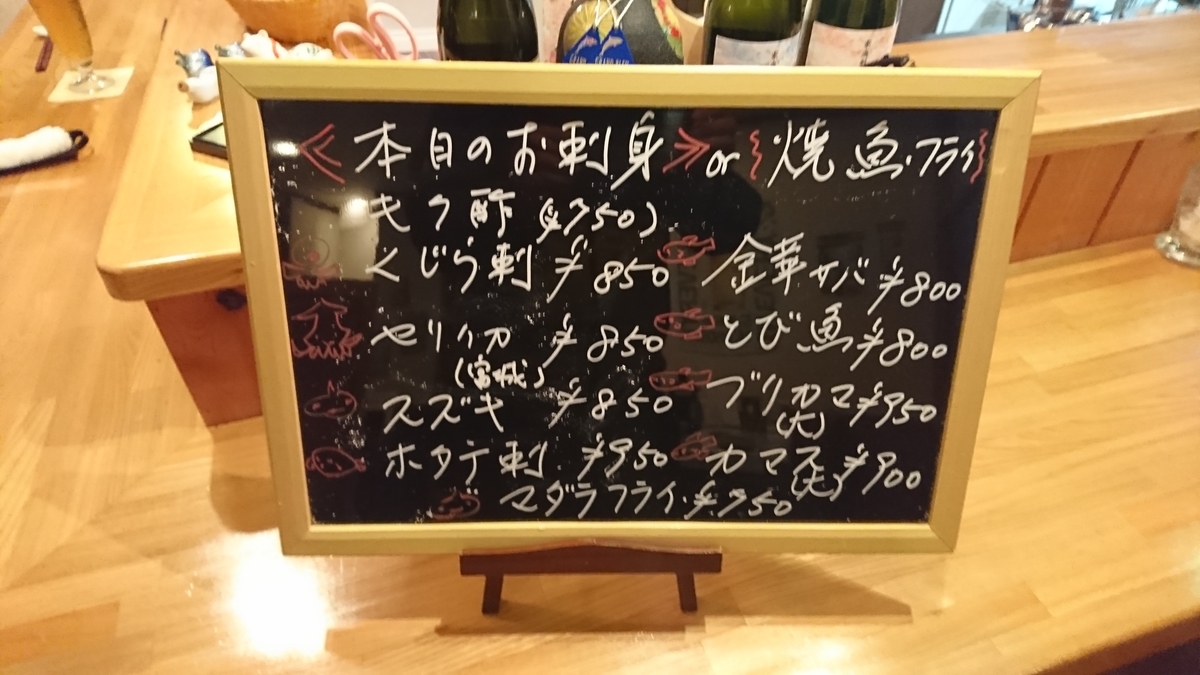 《本日のお刺身》or{焼魚・フライ}
モウ酢(¥750)
くじら刺 ¥850
セリイカ ¥850
(宮城)
スズキ ¥850
ホタテ刺 ¥950
金華サバ ¥800
とび魚 ¥800
ブリカマ ¥950
(大)
カマス ¥900
(大)
マダラフライ・¥750